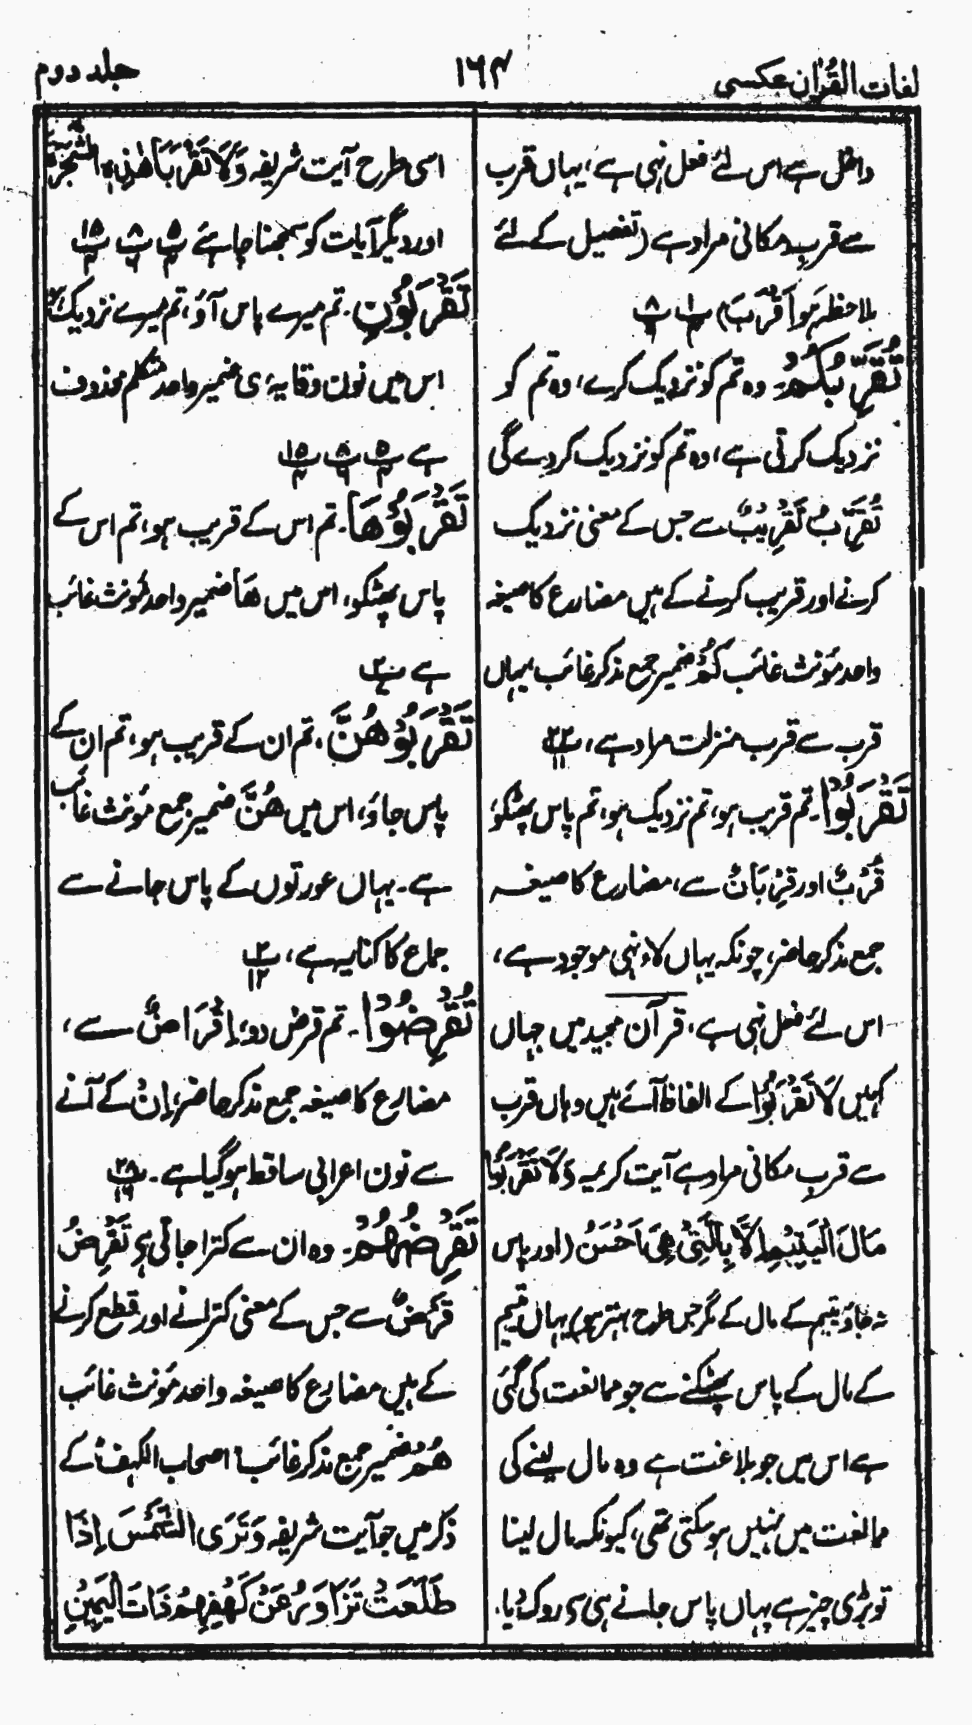 لغات القرآن عکسی
۱۶۴
جلد دوم
داخل ہے اس لئے فعل نہی ہے، یہاں قرب
سے قربِ مکانی مراد ہے (تفصیل کے لئے
ملاحظہ ہو اَقْرَبَ)
تُقَرِّبُکُمْ۔ وہ تم کو نزدیک کرے، وہ تم کو
نزدیک کرتی ہے، وہ تم کو نزدیک کردے گی
تُقَرِّبُ تَقْرِیْبٌ سے جس کے معنی نزدیک
کرنے اور قریب کرنے کے ہیں مضارع کا صیغہ
واحد مؤنث غائب کُمْ ضمیر جمع مذکر غائب یہاں
قرب سے قرب منزلت مراد ہے، پ ۲۲ ۱۱
تَقْرَبُوْا۔ تم قریب ہو، تم نزدیک ہو، تم پاس پھٹکو،
قُرْبٌ اور قِرْبَانٌ سے، مضارع کا صیغہ
جمع مذکر حاضر، چونکہ یہاں لاء نہی موجود ہے،
اس لئے فعل نہی ہے، قرآن مجید میں جہاں
کہیں لَا تَقْرَبُوْا کے الفاظ آئے ہیں وہاں قرب
سے قربِ مکانی مراد ہے آیت کریمہ وَلَا تَقْرَبُوْا
مَالَ الْیَتِیْمِ اِلَّا بِالَّتِیْ هِیَ اَحْسَنُ (اور پاس
نہ جاؤ یتیم کے مال کے مگر جس طرح بہتر ہو) یہاں یتیم
کے مال کے پاس پھٹکنے سے جو ممانعت کی گئی
ہے اس میں جو بلاغت ہے وہ مال لینے کی
ممانعت میں نہیں ہو سکتی تھی، کیونکہ مال لینا
تو بڑی چیز ہے یہاں پاس جانے ہی سے روک دیا۔
اسی طرح آیت شریفہ وَلَا تَقْرَبَا هٰذِهِ الشَّجَرَةَ
اور دیگر آیات کو سمجھنا چاہئے
تَقْرَبُوْنِ۔ تم میرے پاس آؤ، تم میرے نزدیک ہو
اس میں نون وقایہ، ی ضمیر واحد متکلم محذوف
ہے
تَقْرَبُوْهَا۔ تم اس کے قریب ہو، تم اس کے
پاس پھٹکو، اس میں هَا ضمیر واحد مؤنث غائب
ہے
تَقْرَبُوْهُنَّ، تم ان کے قریب ہو، تم ان کے
پاس جاؤ، اس میں هُنَّ ضمیر جمع مؤنث غائب
ہے۔ یہاں عورتوں کے پاس جانے سے
جماع کا کنایہ ہے، پ ۲ ۱۲
تُقْرِضُوْا۔ تم قرض دو، اِقْرَاضٌ سے،
مضارع کا صیغہ جمع مذکر حاضر، اِنْ کے آنے
سے نون اعرابی ساقط ہوگیا ہے۔ پ ۲۸ ۱۶
تَقْرِضُهُمْ۔ وہ ان سے کترا جاتی ہے تَقْرِضُ
قَرْضٌ سے جس کے معنی کترانے اور قطع کرنے
کے ہیں مضارع کا صیغہ واحد مؤنث غائب
هُمْ ضمیر جمع مذکر غائب، اصحاب الکہف کے
ذکر میں جو آیت شریفہ وَتَرَی الشَّمْسَ اِذَا
طَلَعَتْ تَزَاوَرُ عَنْ کَهْفِهِمْ ذَاتَ الْیَمِیْنِ